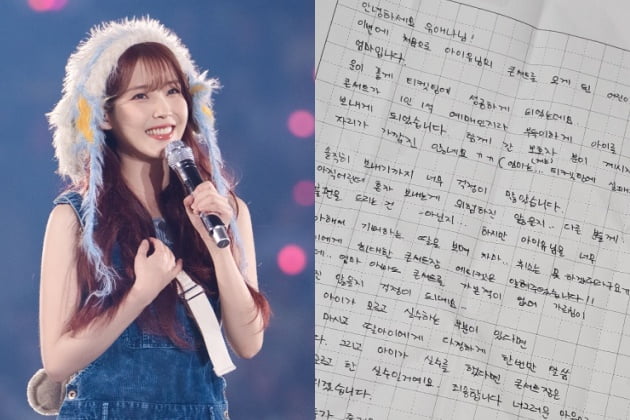 안녕하세요 유애나님!
이번에 처음으로 아이유님의 콘서트를 오게 된 어린이
엄마입니다.
운이 좋게 티켓팅에 성공하게 되었는데요..
콘서트가 1인 1석 예매인지라 부득이하게 아이를
보내게 되었습니다. 함께 간 보호자 분이 계시지
자리가 가깝진 않네요 ㅠㅠ (엄마는... 티켓팅에 실패
솔직히 보내기까지 너무 걱정이 많았습니다.
아직어린데 혼자 보내는게 위험하진 않을지.. 다른 분들께
불편을 드리는 건 아닌지... 하지만 아이유님을 너무
기뻐하는 딸을 보며 차마.. 취소는 못 하겠더라구요
에게 최대한 콘서트장 에티켓은 알려주었습니다!!
엄마 아빠도 콘서트를 가본적이 없어
않을지 걱정이 되네요..
아이가 모르고 실수하는 부분이 있다면
마시고 딸아이에게 다정하게 한번만 말씀
다. 그리고 아이가 실수를 했다면 콘서트장은
모르고 한 실수일거예요 죄송합니다 너그러운
겠습니다.